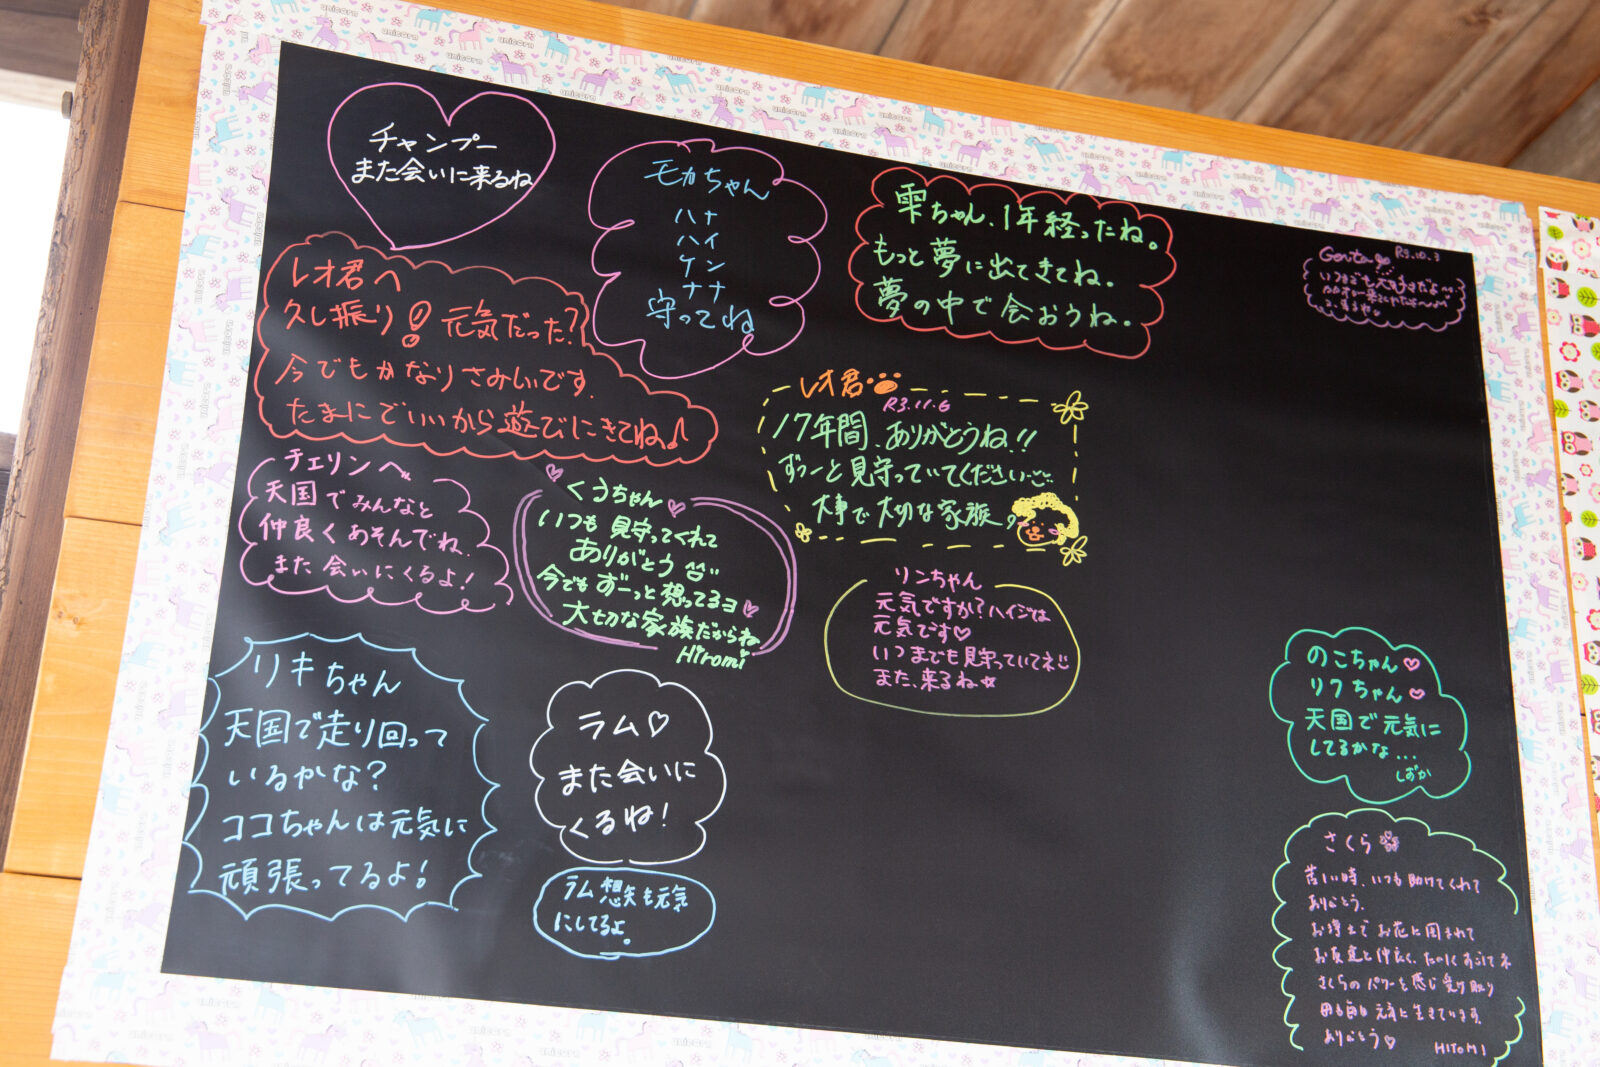 チャンプー
また会いに来るね
モカちゃん
ハナ
ハイ
ケン
ナナ
守ってね
雫ちゃん、1年経ったね。
もっと夢に出てきてね。
夢の中で会おうね。
R3.10.3
いつまでも大好きだよ
レオ君へ
久し振り! 元気だった?
今でもかなりさみしいです.
たまにでいいから遊びにきてね♪
レオ君
R3.11.6
17年間、ありがとうね!!
ずっーと見守っていてください
大事で大切な家族
チェリンへ
天国でみんなと
仲良くあそんでね.
また会いにくるよ!
くうちゃん
いつも見守ってくれて
ありがとう
今でもずーっと想ってるヨ
大切な家族だからね
Hiromi
リンちゃん
元気ですか?ハイジは
元気です♡
いつまでも見守っていてネ
また、来るね☆
リキちゃん
天国で走り回って
いるかな?
ココちゃんは元気に
頑張ってるよ!
ラム♡
また会いに
くるね!
ラム 想矢も元気
にしてるよ。
のこちゃん♡
リクちゃん♡
天国で元気に
してるかな...
しずか
さくら
苦しい時、いつも助けてくれて
ありがとう.
お浄土でお花に囲まれて
お友達と仲良く、たのしくすごしてネ
さくらのパワーを感じ受け取り
元気に生きています.
ありがとう♡
HITOMI